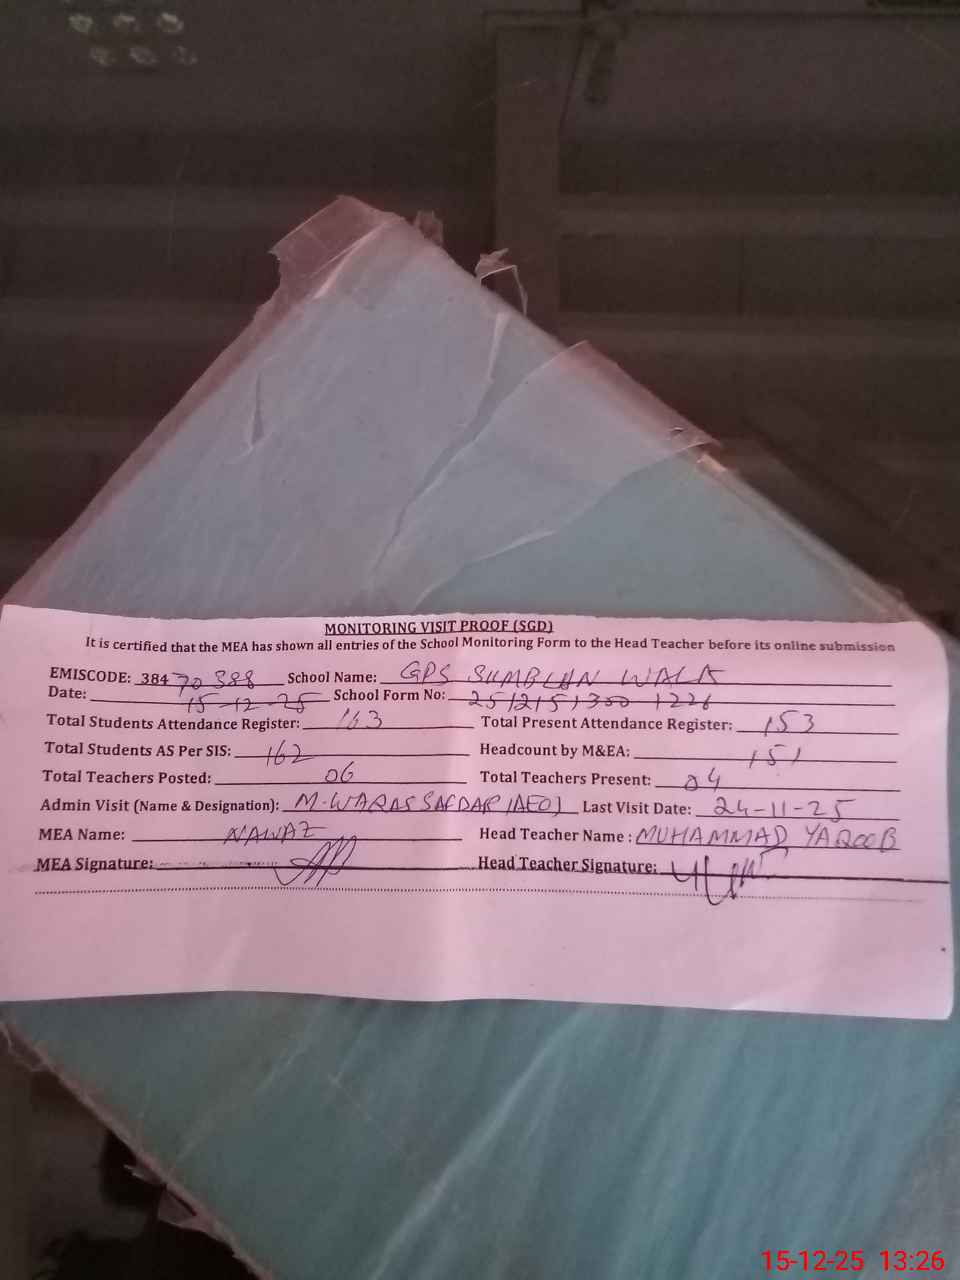 MONITORING VISIT PROOF (SGD)
It is certified that the MEA has shown all entries of the School Monitoring Form to the Head Teacher before its online submission
EMISCODE: 38470388 School Name: GPS SUMBLAN WALA
Date: 15-12-25 School Form No:
Total Students Attendance Register: 163 Total Present Attendance Register: 153
Total Students AS Per SIS: 162 Headcount by M&EA: 151
Total Teachers Posted: 06 Total Teachers Present: 04
Admin Visit (Name & Designation): M.WARAS SAFDAR (AEO) Last Visit Date: 24-11-25
MEA Name: NAWAZ Head Teacher Name : MUHAMMAD YAQOOB
MEA Signature: Head Teacher Signature:
15-12-25 13:26